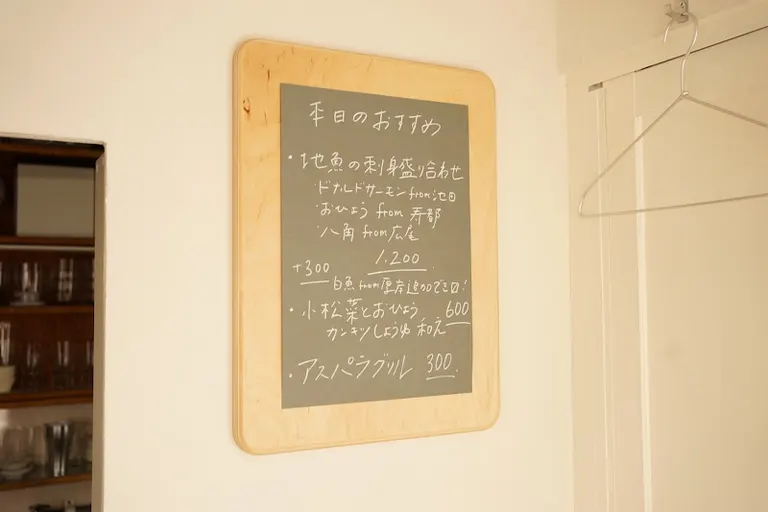 本日のおすすめ
・地魚の刺身盛り合わせ
・ドナルドサーモン from 池田
・おひょう from 寿都
・八角 from 広尾
1,200
+300 白魚 from 厚岸追加でき□!
・小松菜とおひょう 600
カンキツしょうゆ和え
・アスパラグリル 300.